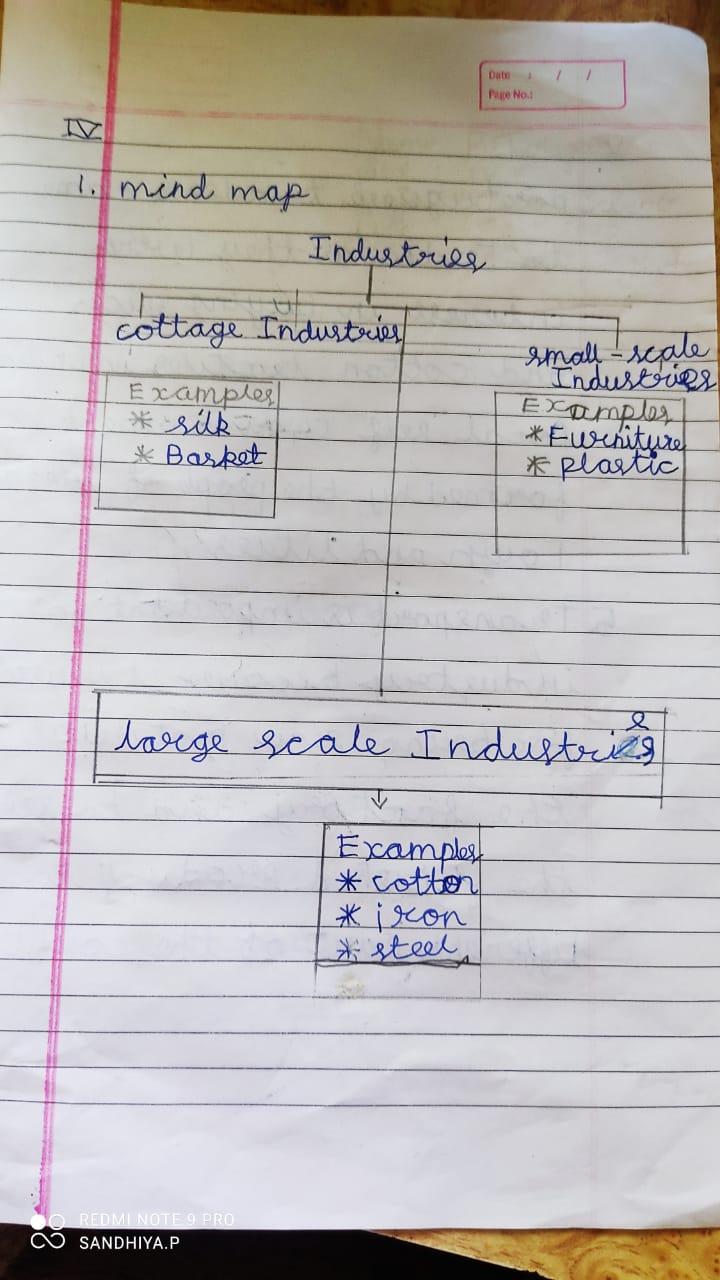 Date : / /
Page No.:
IV
1. mind map
Industries
cottage Industries
Examples
* silk
* Basket
small-scale
Industries
Examples
* Furniture
* plastic
large scale Industries
Examples
* cotton
* iron
* steel
REDMI NOTE 9 PRO
SANDHIYA.P